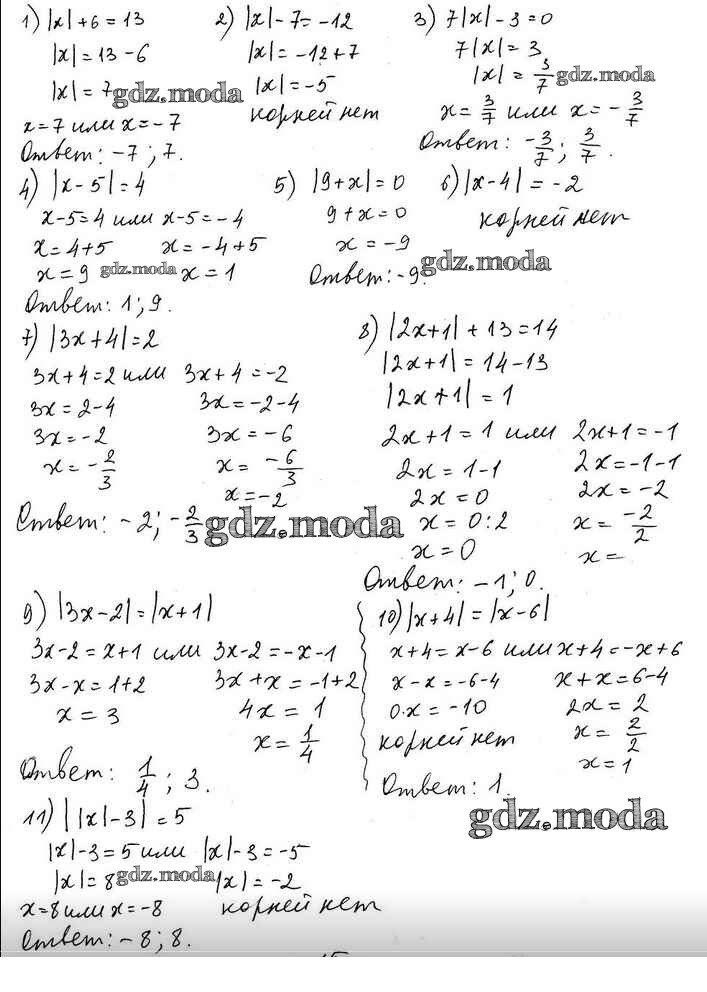 1) |x| + 6 = 13
|x| = 13 - 6
|x| = 7
gdz.moda
x = 7 или x = -7
Ответ: -7; 7.
2) |x| - 7 = -12
|x| = -12 + 7
|x| = -5
корней нет
3) 7|x| - 3 = 0
7|x| = 3
|x| = 3/7
gdz.moda
x = 3/7 или x = -3/7
Ответ: -3/7; 3/7.
4) |x - 5| = 4
x - 5 = 4 или x - 5 = -4
x = 4 + 5 x = -4 + 5
x = 9 gdz.moda x = 1
Ответ: 1; 9.
5) |9 + x| = 0
9 + x = 0
x = -9
Ответ: -9.
6) |x - 4| = -2
корней нет
gdz.moda
7) |3x + 4| = 2
3x + 4 = 2 или 3x + 4 = -2
3x = 2 - 4 3x = -2 - 4
3x = -2 3x = -6
x = -2/3 x = -6/3
x = -2
Ответ: -2; -2/3
gdz.moda
8) |2x + 1| + 13 = 14
|2x + 1| = 14 - 13
|2x + 1| = 1
2x + 1 = 1 или 2x + 1 = -1
2x = 1 - 1 2x = -1 - 1
2x = 0 2x = -2
x = 0 : 2 x = -2/2
x = 0 x =
Ответ: -1; 0.
9) |3x - 2| = |x + 1|
3x - 2 = x + 1 или 3x - 2 = -x - 1
3x - x = 1 + 2 3x + x = -1 + 2
x = 3 4x = 1
x = 1/4
Ответ: 1/4; 3.
10) |x + 4| = |x - 6|
x + 4 = x - 6 или x + 4 = -x + 6
x - x = -6 - 4 x + x = 6 - 4
0·x = -10 2x = 2
корней нет x = 2/2
x = 1
Ответ: 1.
gdz.moda
11) ||x| - 3| = 5
|x| - 3 = 5 или |x| - 3 = -5
|x| = 8 gdz.moda |x| = -2
x = 8 или x = -8 корней нет
Ответ: -8; 8.